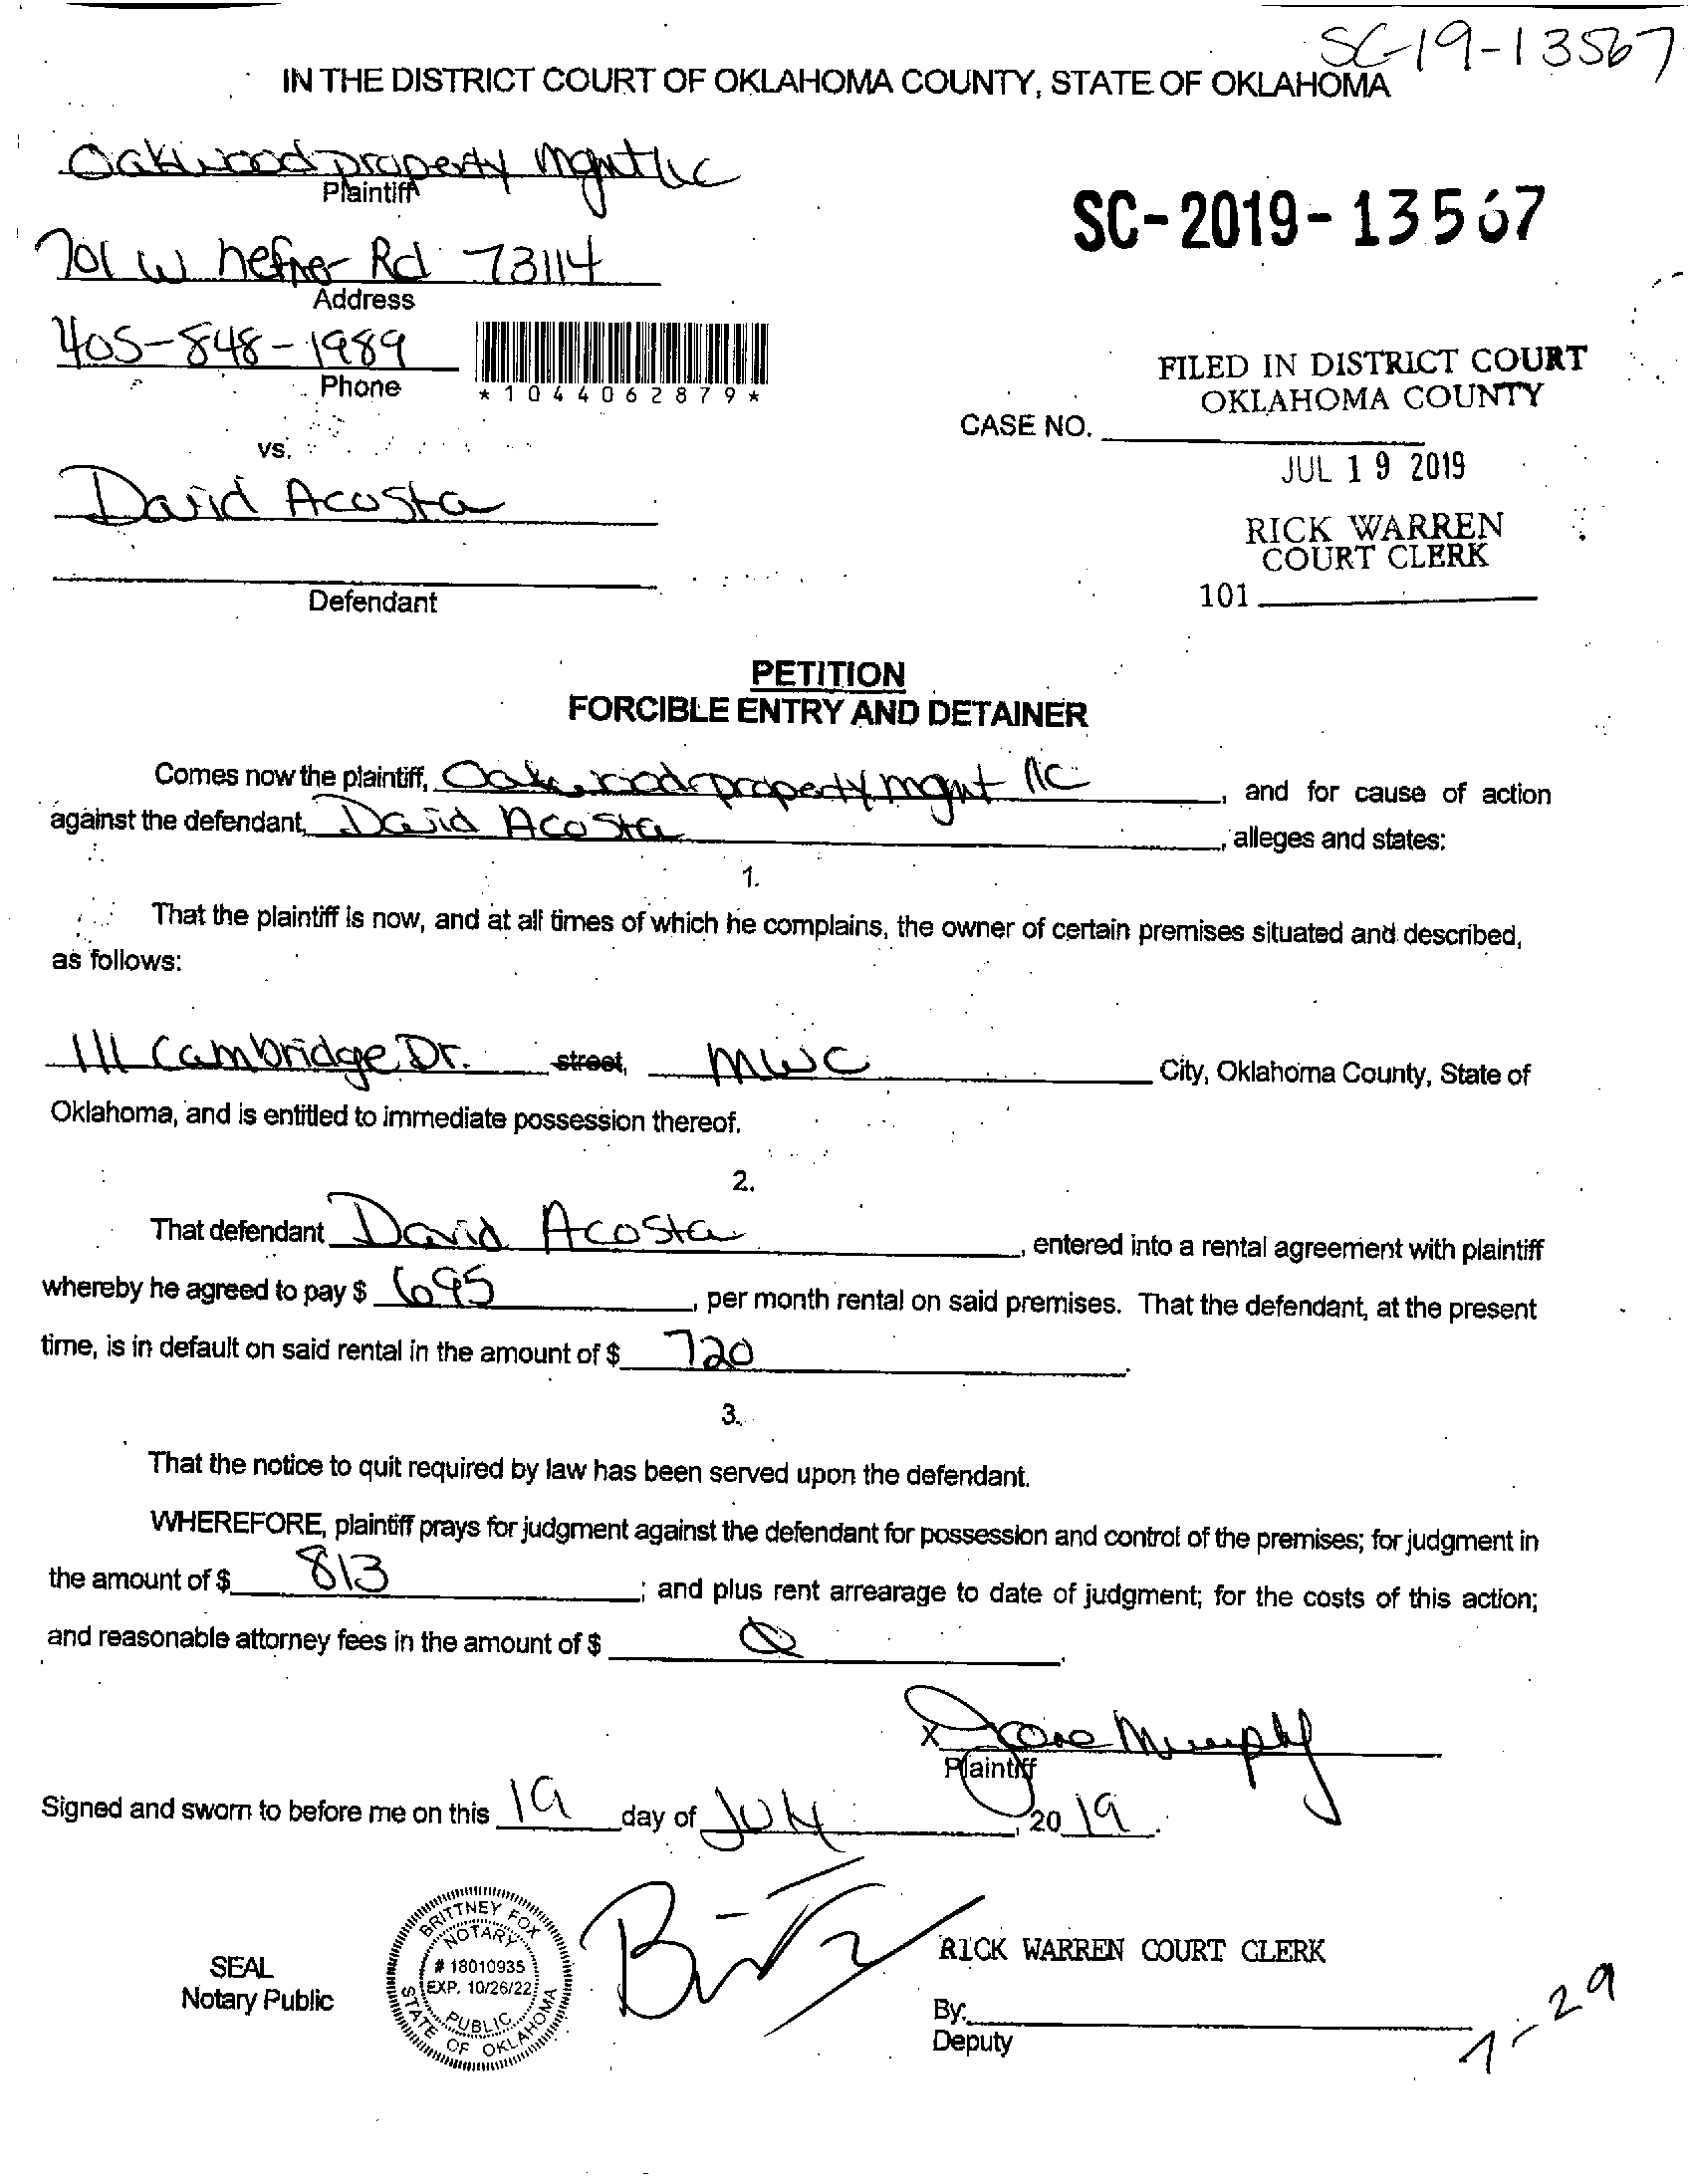 SC-19-13567
IN THE DISTRICT COURT OF OKLAHOMA COUNTY, STATE OF OKLAHOMA
Oakwood property Mgmt llc
Plaintiff
SC-2019-13567
701 W hefner Rd 73114
Address
405-848-1989
Phone
*1044062879*
FILED IN DISTRICT COURT
OKLAHOMA COUNTY
CASE NO.
vs.
JUL 19 2019
David Acosta
RICK WARREN
COURT CLERK
101
Defendant
PETITION
FORCIBLE ENTRY AND DETAINER
Comes now the plaintiff, Oakwood property mgmt llc, and for cause of action
against the defendant, David Acosta, alleges and states:
1.
That the plaintiff is now, and at all times of which he complains, the owner of certain premises situated and described,
as follows:
111 Cambridge Dr. street, MWC City, Oklahoma County, State of
Oklahoma, and is entitled to immediate possession thereof.
2.
That defendant David Acosta, entered into a rental agreement with plaintiff
whereby he agreed to pay $ 695, per month rental on said premises. That the defendant, at the present
time, is in default on said rental in the amount of $ 720.
3.
That the notice to quit required by law has been served upon the defendant.
WHEREFORE, plaintiff prays for judgment against the defendant for possession and control of the premises; for judgment in
the amount of $ 813; and plus rent arrearage to date of judgment; for the costs of this action;
and reasonable attorney fees in the amount of $ 0.
X Murphy
Plaintiff
Signed and sworn to before me on this 19 day of July, 2019.
BRITTNEY FOX
NOTARY
# 18010935
EXP. 10/26/22
PUBLIC
STATE OF OKLAHOMA
SEAL
Notary Public
RICK WARREN COURT CLERK
By:
Deputy
7-29